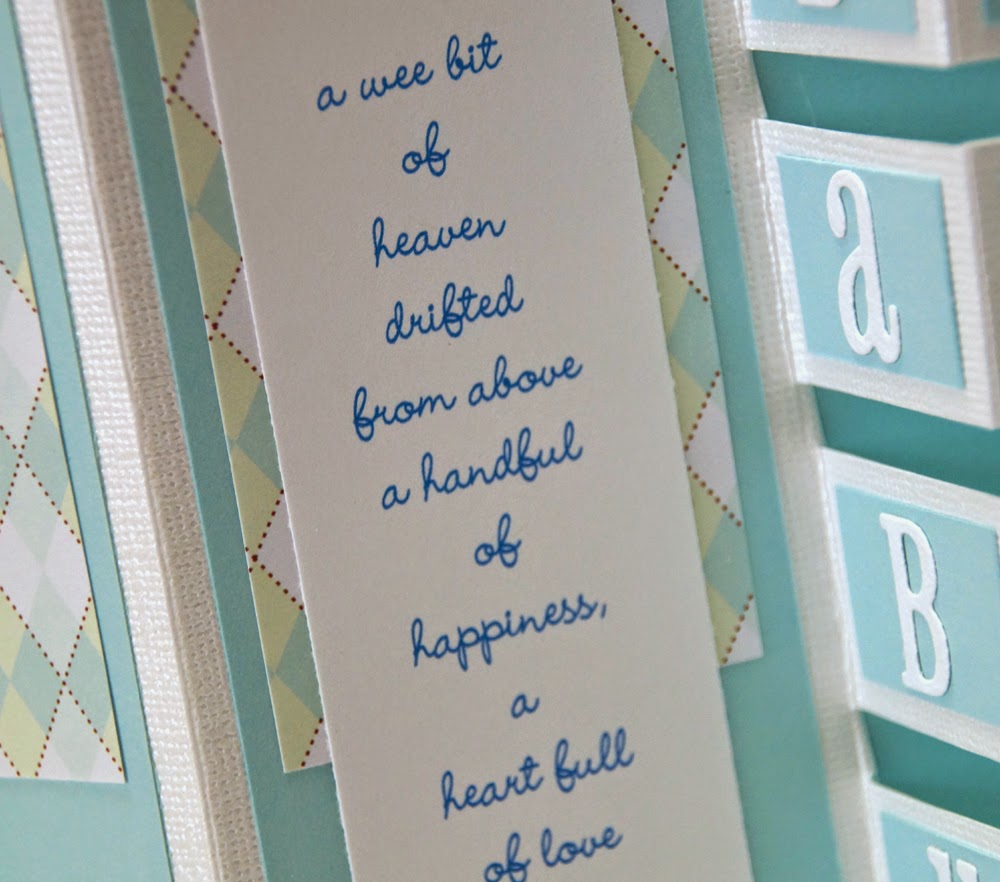 a wee bit
of
heaven
drifted
from above
a handful
of
happiness,
a
heart full
of love
a
B